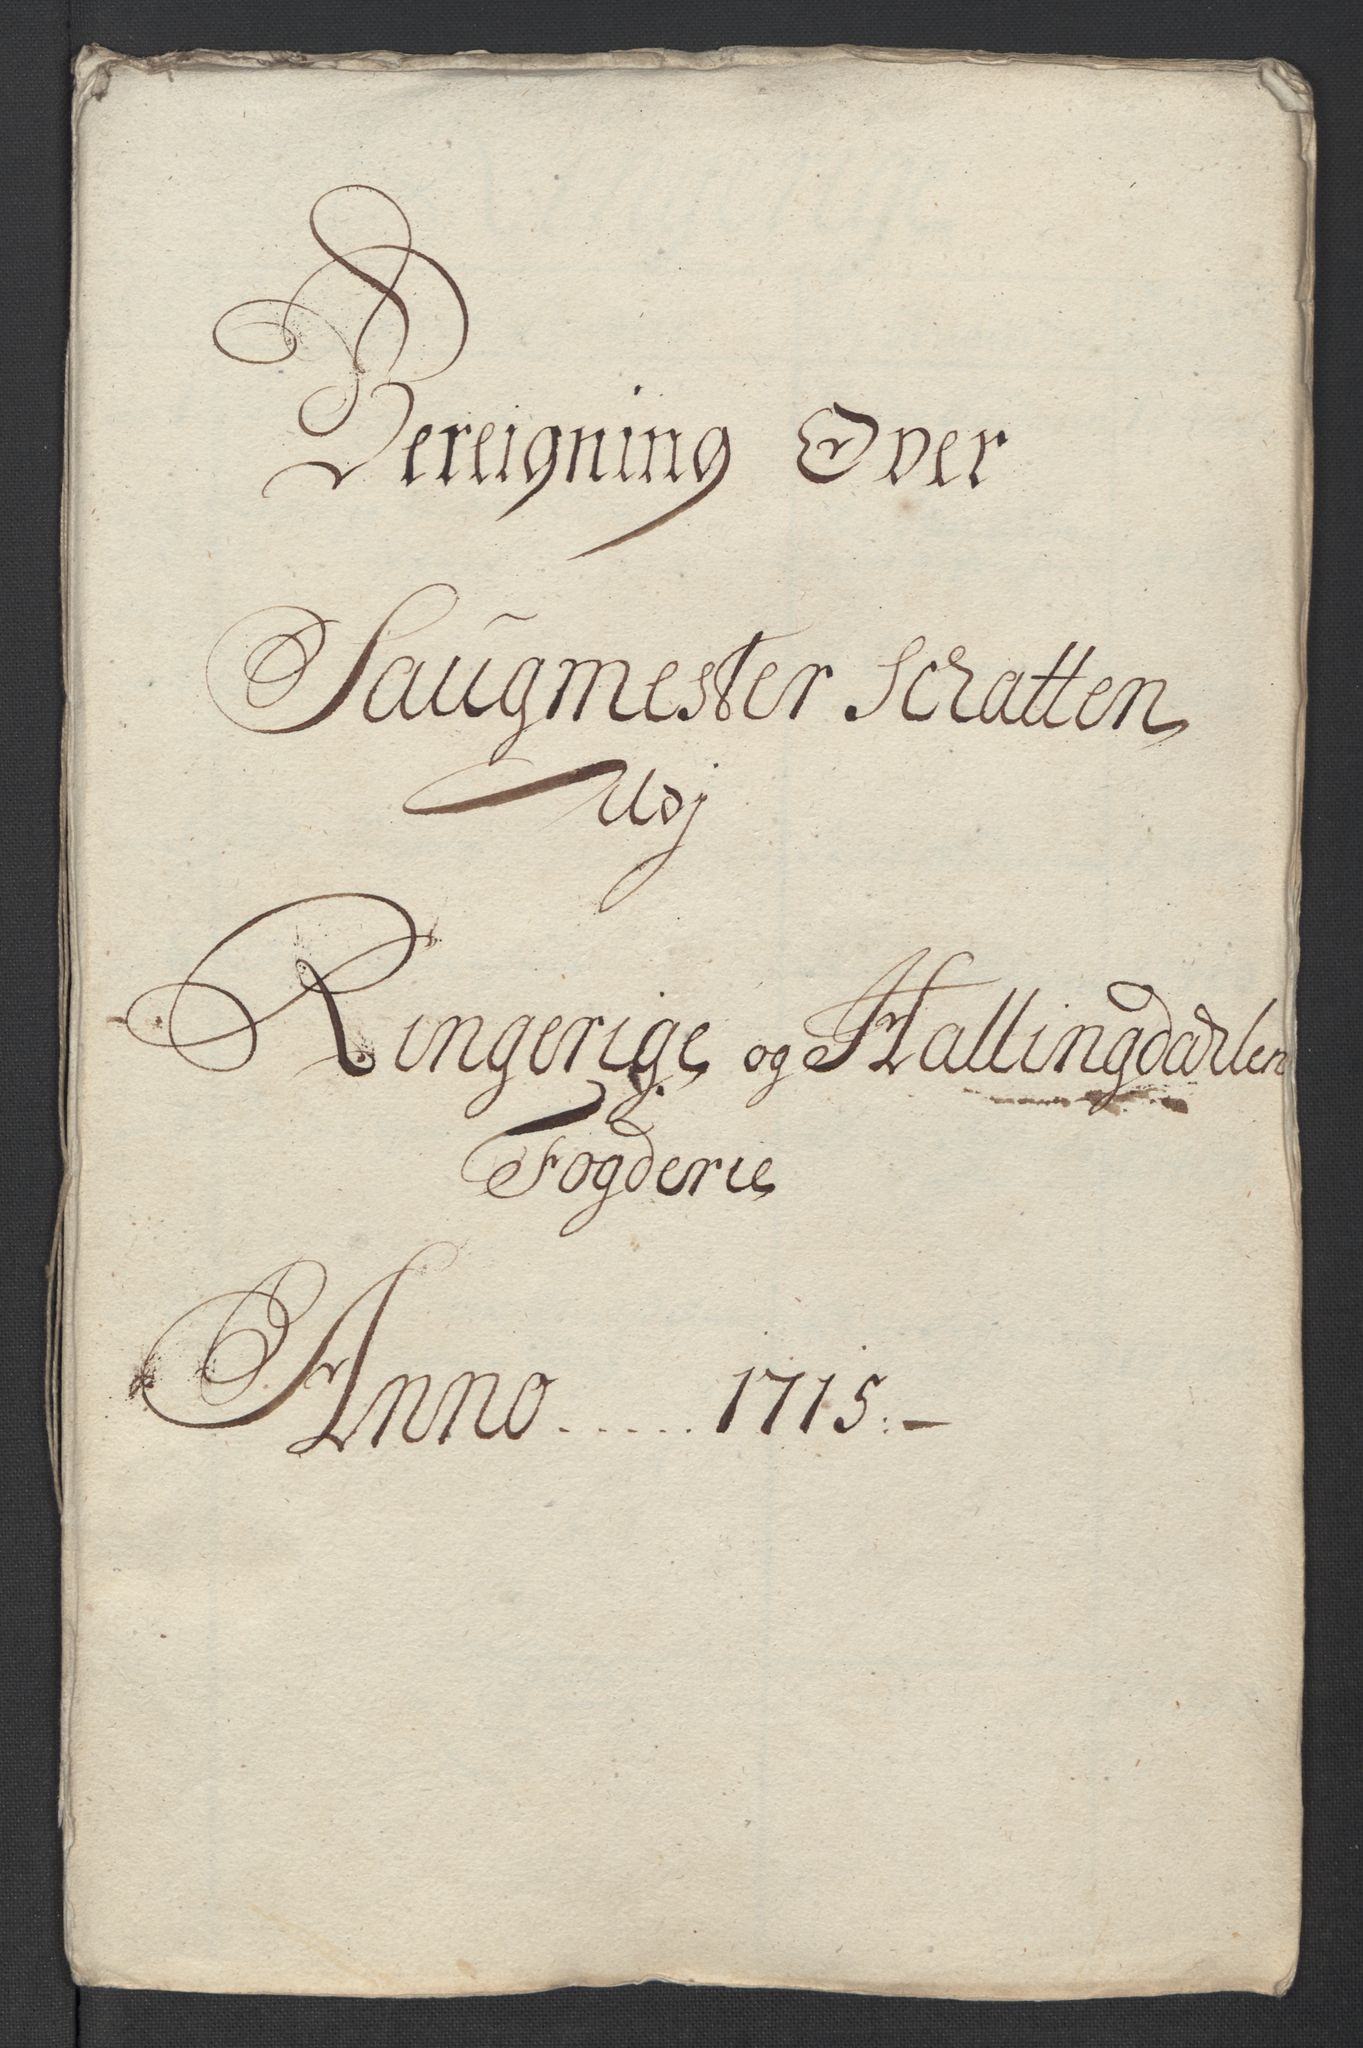 Bereigning Over
Saugmester Schatten
Udj
Ringerige og Hallingdahlen
Fogderie
Anno ..... 1715.—